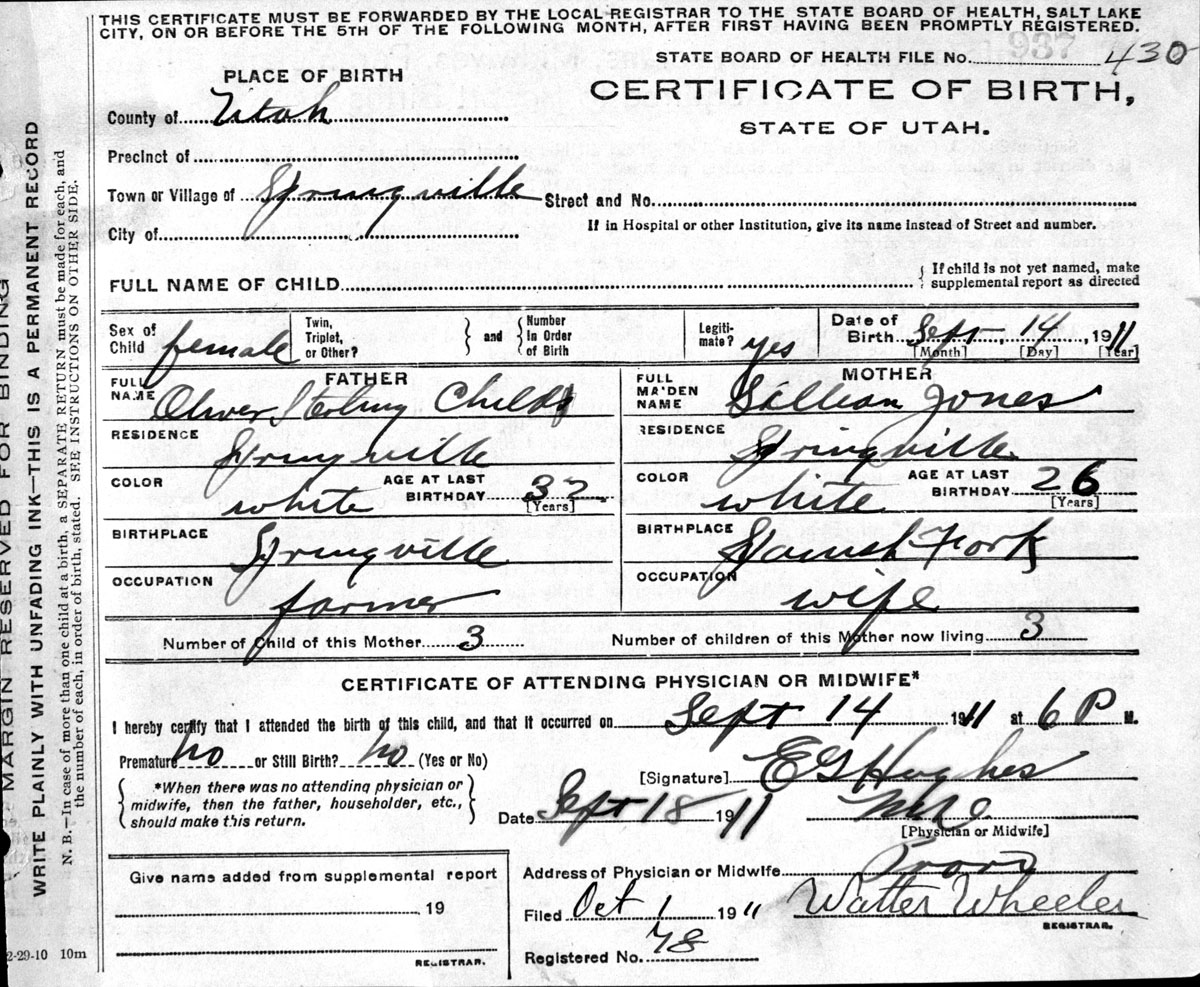 THIS CERTIFICATE MUST BE FORWARDED BY THE LOCAL REGISTRAR TO THE STATE BOARD OF HEALTH, SALT LAKE
CITY, ON OR BEFORE THE 5TH OF THE FOLLOWING MONTH, AFTER FIRST HAVING BEEN PROMPTLY REGISTERED.
STATE BOARD OF HEALTH FILE No. 937 430
PLACE OF BIRTH
CERTIFICATE OF BIRTH,
STATE OF UTAH.
County of Utah
Precinct of
Town or Village of Springville Street and No.
City of If in Hospital or other Institution, give its name instead of Street and number.
FULL NAME OF CHILD { If child is not yet named, make
supplemental report as directed
Sex of Child female Twin, Triplet, or Other? } and { Number in Order of Birth Legiti-mate? yes Date of Birth Sept 14, 1911
[Month] [Day] [Year]
FATHER MOTHER
FULL NAME Oliver Sterling Childs FULL MAIDEN NAME Lillian Jones
RESIDENCE Springville RESIDENCE Springville
COLOR white AGE AT LAST BIRTHDAY 32 [Years] COLOR white AGE AT LAST BIRTHDAY 26 [Years]
BIRTHPLACE Springville BIRTHPLACE Spanish Fork
OCCUPATION farmer OCCUPATION wife
Number of Child of this Mother 3 Number of children of this Mother now living 3
CERTIFICATE OF ATTENDING PHYSICIAN OR MIDWIFE*
I hereby certify that I attended the birth of this child, and that it occurred on Sept 14 1911 at 6 P M.
Premature no or Still Birth? no (Yes or No)
[Signature] E G Hughes
{ *When there was no attending physician or
midwife, then the father, householder, etc.,
should make this return. }
Date Sept 18 1911
[Physician or Midwife]
Give name added from supplemental report
19
REGISTRAR.
Address of Physician or Midwife Provo
Filed Oct 1 1911 Walter Wheeler
REGISTRAR.
Registered No. 78
MARGIN RESERVED FOR BINDING
WRITE PLAINLY WITH UNFADING INK—THIS IS A PERMANENT RECORD
N. B.—In case of more than one child at a birth, a SEPARATE RETURN must be made for each, and
the number of each, in order of birth, stated. SEE INSTRUCTIONS ON OTHER SIDE.
2-29-10 10m